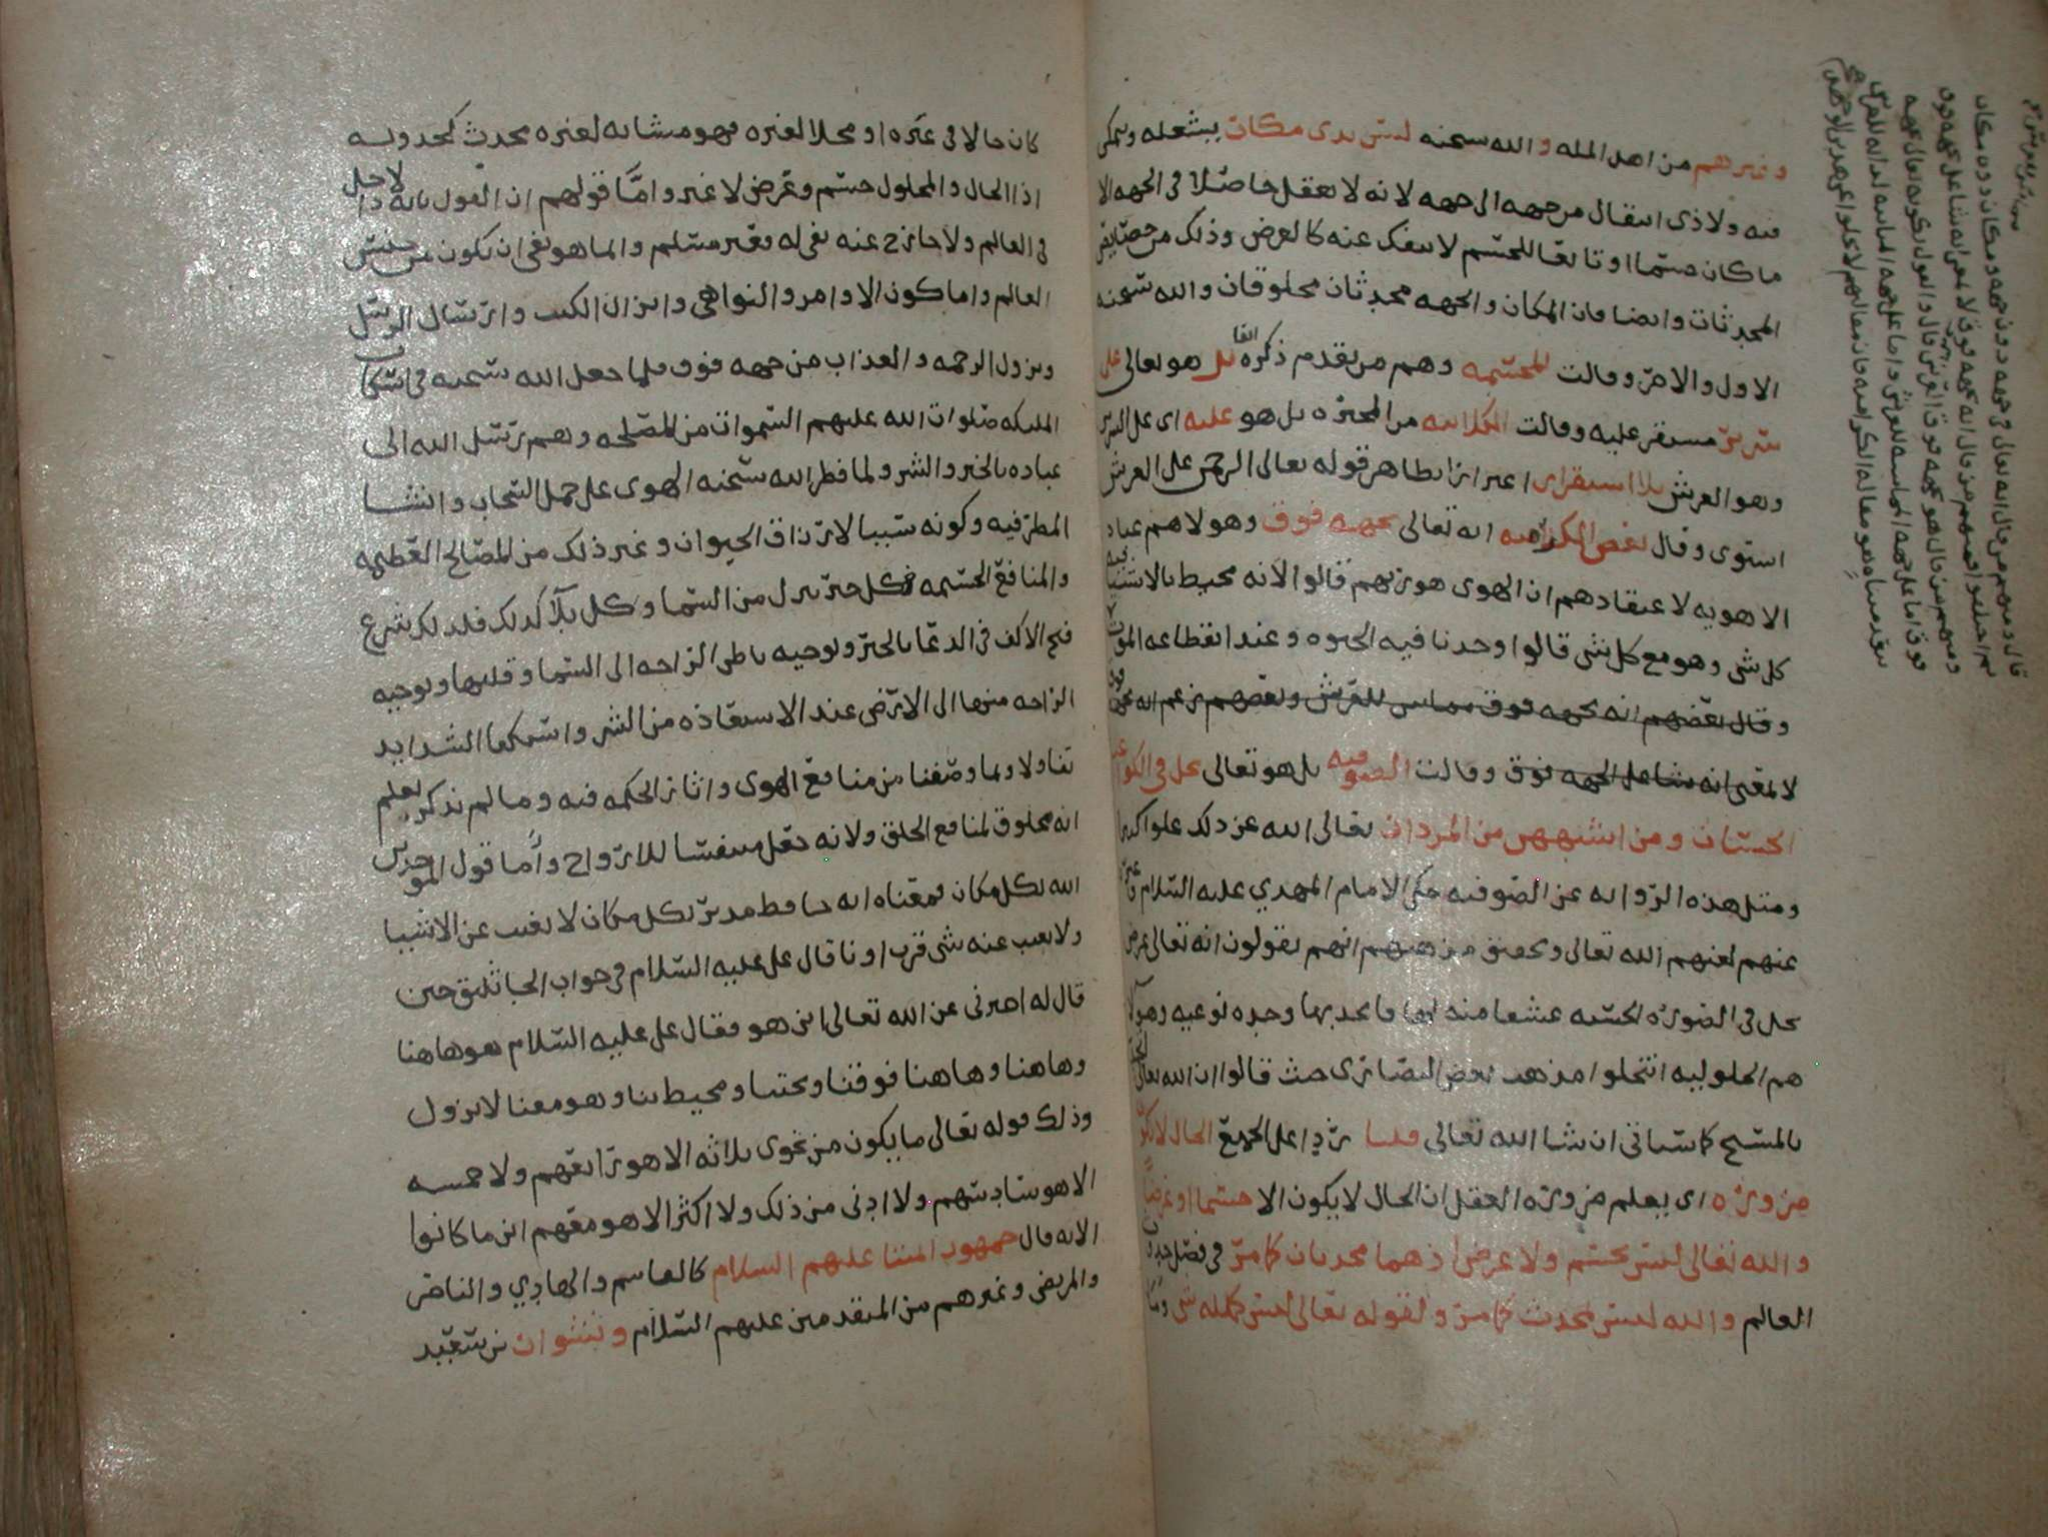 وغيرهم من اهل المله والله سبحنه ليس بذى مكان يشغله ويتمكن
فيه ولا ذى انتقال من جهه الى جهه لانه لا يعقل حاصلا فى الجهه الا
ما كان جسما او تابعا للجسم لا ينفك عنه كالعرض وذلك من خصايص
المحدثات وايضا فان المكان والجهه محدثان مخلوقان والله سبحنه
الاول والاخر وقالت المجسمه وهم من تقدم ذكره انفا بل هو تعالى على
سرير مستقر عليه وقالت الكلابيه من المجبره بل هو عليه اى على السرير
وهو العرش بلا استقرار اغترارا بظاهر قوله تعالى الرحمن على العرش
استوى وقال بعض الكراميه انه تعالى بجهه فوق وهولاهم عباد
الاهويه لاعتقادهم ان الهوى هو ربهم قالوا لانه محيط بالاشيا
كل شى وهو مع كل شى قالوا وجدنا فيه الحيوه وعند انقطاعه الموت
وقال بعضهم انه بجهه فوق مماس للعرش وبعضهم زعم انه بجهه فوق
لا بمعنى انه شاغل الجهه فوق وقالت الصوفيه بل هو تعالى يحل فى الكواعب
الحسان ومن اشبههن من المردان تعالى الله عن ذلك علوا كبيرا
ومثل هذه الروايه عن الصوفيه حكى الامام المهدي عليه السلام وغيره
عنهم لعنهم الله تعالى وتحقيق مذهبهم انهم يقولون انه تعالى عرض
يحل فى الصوره الحسنه عشقا منه لها فاتحد بها وحده نوعيه وهولا
هم الحلوليه انتحلوا مذهب بعض النصارى حيث قالوا ان الله تعالى اتحد
بالمسيح كما سياتى ان شا الله تعالى قلنا ردا على الجميع الحال لا يكون
ضروره اى يعلم ضروره العقل ان الحال لا يكون الا جسما او عرضا
والله تعالى ليس بجسم ولا عرض اذ هما محدثان كما مر فى فصل حدوث
العالم والله ليس بمحدث كما مر ولقوله تعالى ليس كمثله شى وما
كان حالا فى غيره او محلا لغيره فهو مشابه لغيره محدث كحدوثه
اذ الحال والمحلول جسم وعرض لا غير واما قولهم ان القول بانه لا داخل
فى العالم ولا خارج عنه نفى له فغير مسلم وانما هو نفى ان يكون من جنس
العالم واما كون الاوامر والنواهى وانزال الكتب وارسال الرسل
ونزول الرحمه والعذاب من جهه فوق فلما جعل الله سبحنه فى اسكان
المليكه صلوات الله عليهم السموات من المصلحه وهم رسل الله الى
عباده بالخير والشر ولما فطر الله سبحنه الهوى على حمل السحاب وانشا
المطر فيه وكونه سببا لارزاق الحيوان وغير ذلك من المصالح العظيمه
والمنافع الجسيمه فكل خير ينزل من السما وكل بلا كذلك فلذلك شرع
فتح الاكف فى الدعا بالخير وتوجيه باطن الراحه الى السما وقلبها وتوجيه
الراحه منها الى الارض عند الاستعاذه من الشر واستكفا الشدايد
تفاولا وبما وصفنا من منافع الهوى واثار الحكمه فيه وما لم نذكر يعلم
انه مخلوق لمنافع الخلق ولانه جعل متنفسا للارواح واما قول الموحدين
الله بكل مكان فمعناه انه حافظ مدبر بكل مكان لا يغيب عن الاشيا
ولا يغيب عنه شى قرب او نا قال على عليه السلام فى جواب الجاثليق حين
قال له اخبرنى عن الله تعالى اين هو فقال على عليه السلام هو هاهنا
وهاهنا وهاهنا فوقنا وتحتنا ومحيط بنا وهو معنا لا يزول
وذلك قوله تعالى ما يكون من نجوى ثلاثه الا هو رابعهم ولا خمسه
الا هو سادسهم ولا ادنى من ذلك ولا اكثر الا هو معهم اين ما كانوا
الايه قال جمهور ايمتنا عليهم السلام كالقاسم والهادي والناصر
والمرتضى وغيرهم من المتقدمين عليهم السلام ونشوان بن سعيد